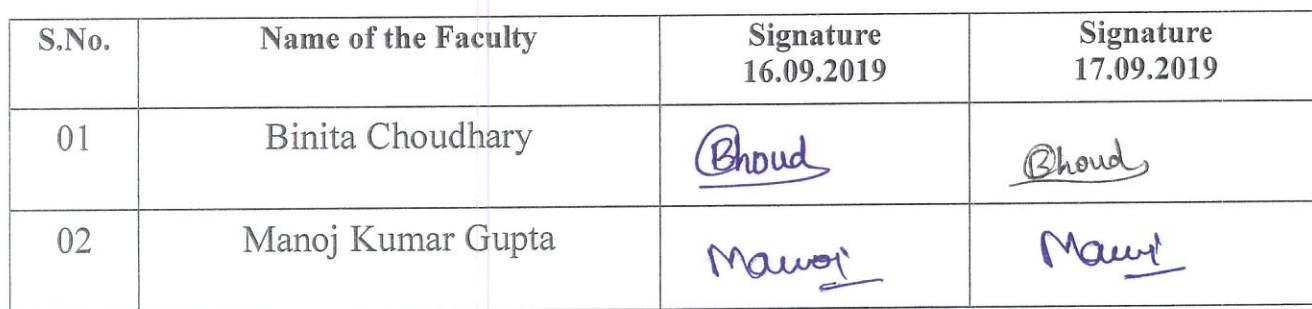 S.No. Name of the Faculty Signature Signature
16.09.2019 17.09.2019
01 Binita Choudhary Bhoud Bhoud
02 Manoj Kumar Gupta Manoj Manoj